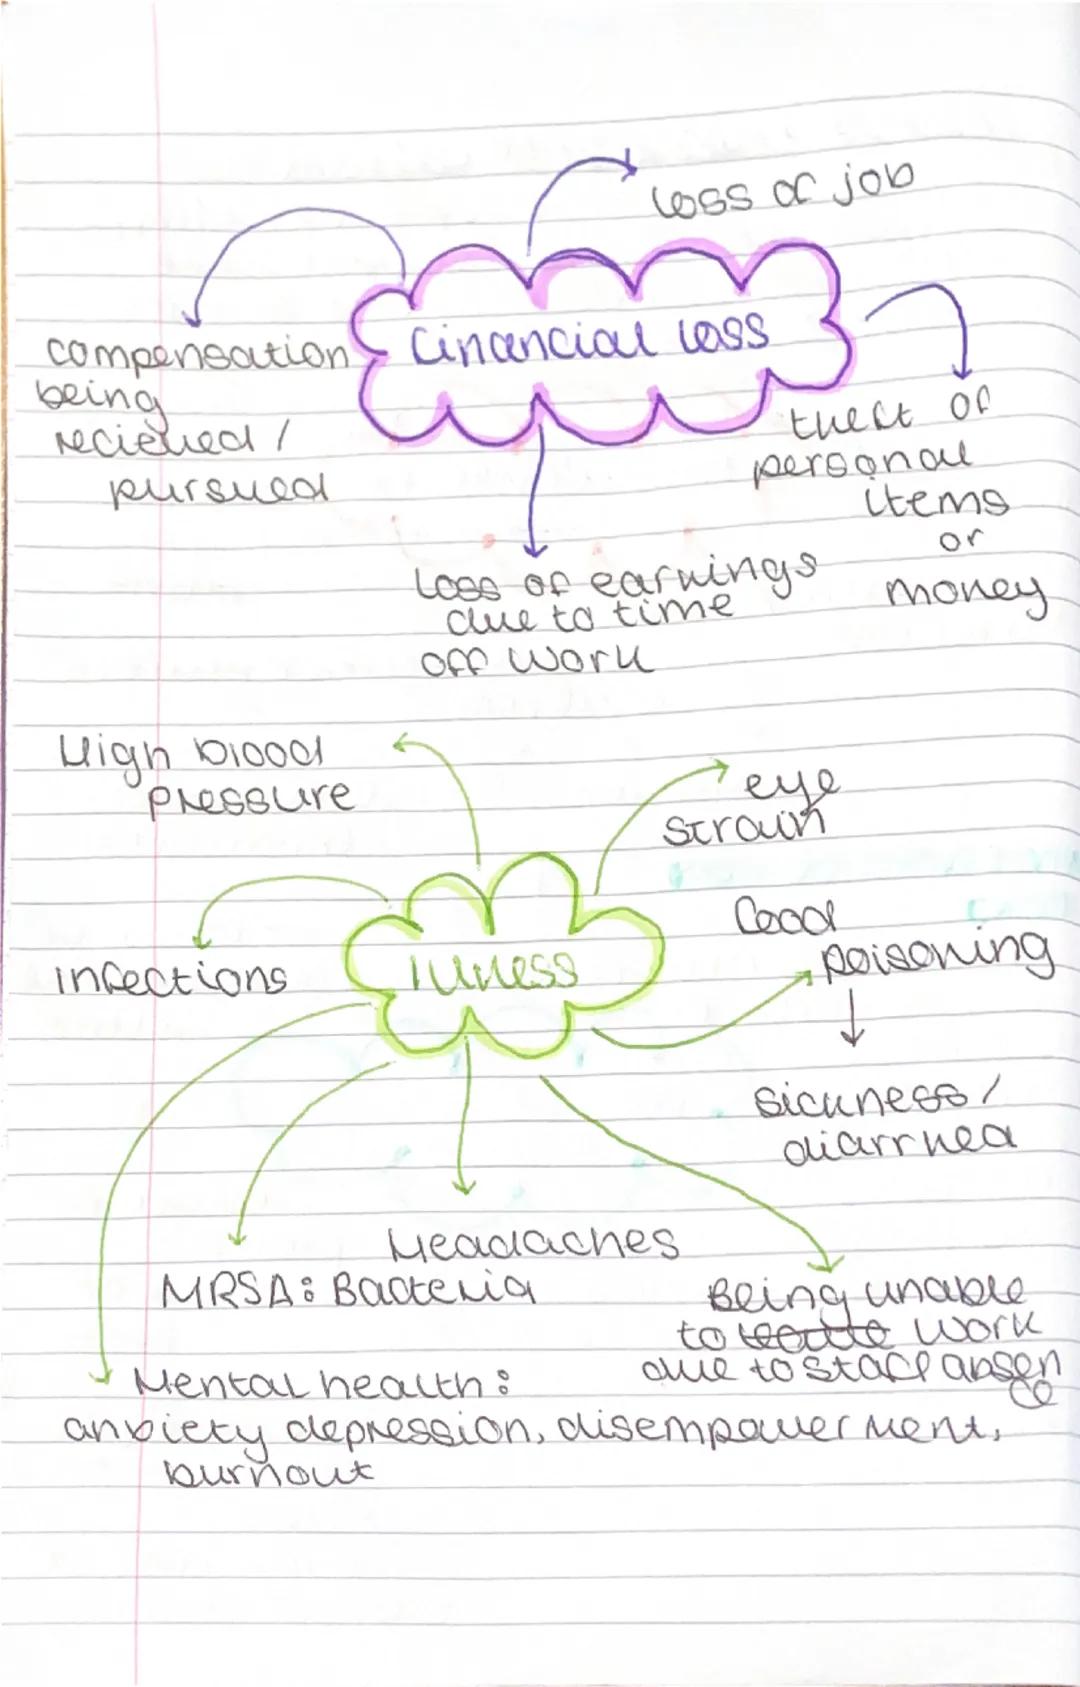 loss of job
financial loss
compensation
being
recieved /
pursued
theft of
personal
items
or
money
loss of earnings
due to time
off work
High blood
pressure
eye
strain
illness
infections
food
poisoning
sickness /
diarrhea
Headaches
MRSA: Bacteria
Being unable
to work
due to staff absen
ce
Mental health:
anxiety depression, disempowerment,
burnout